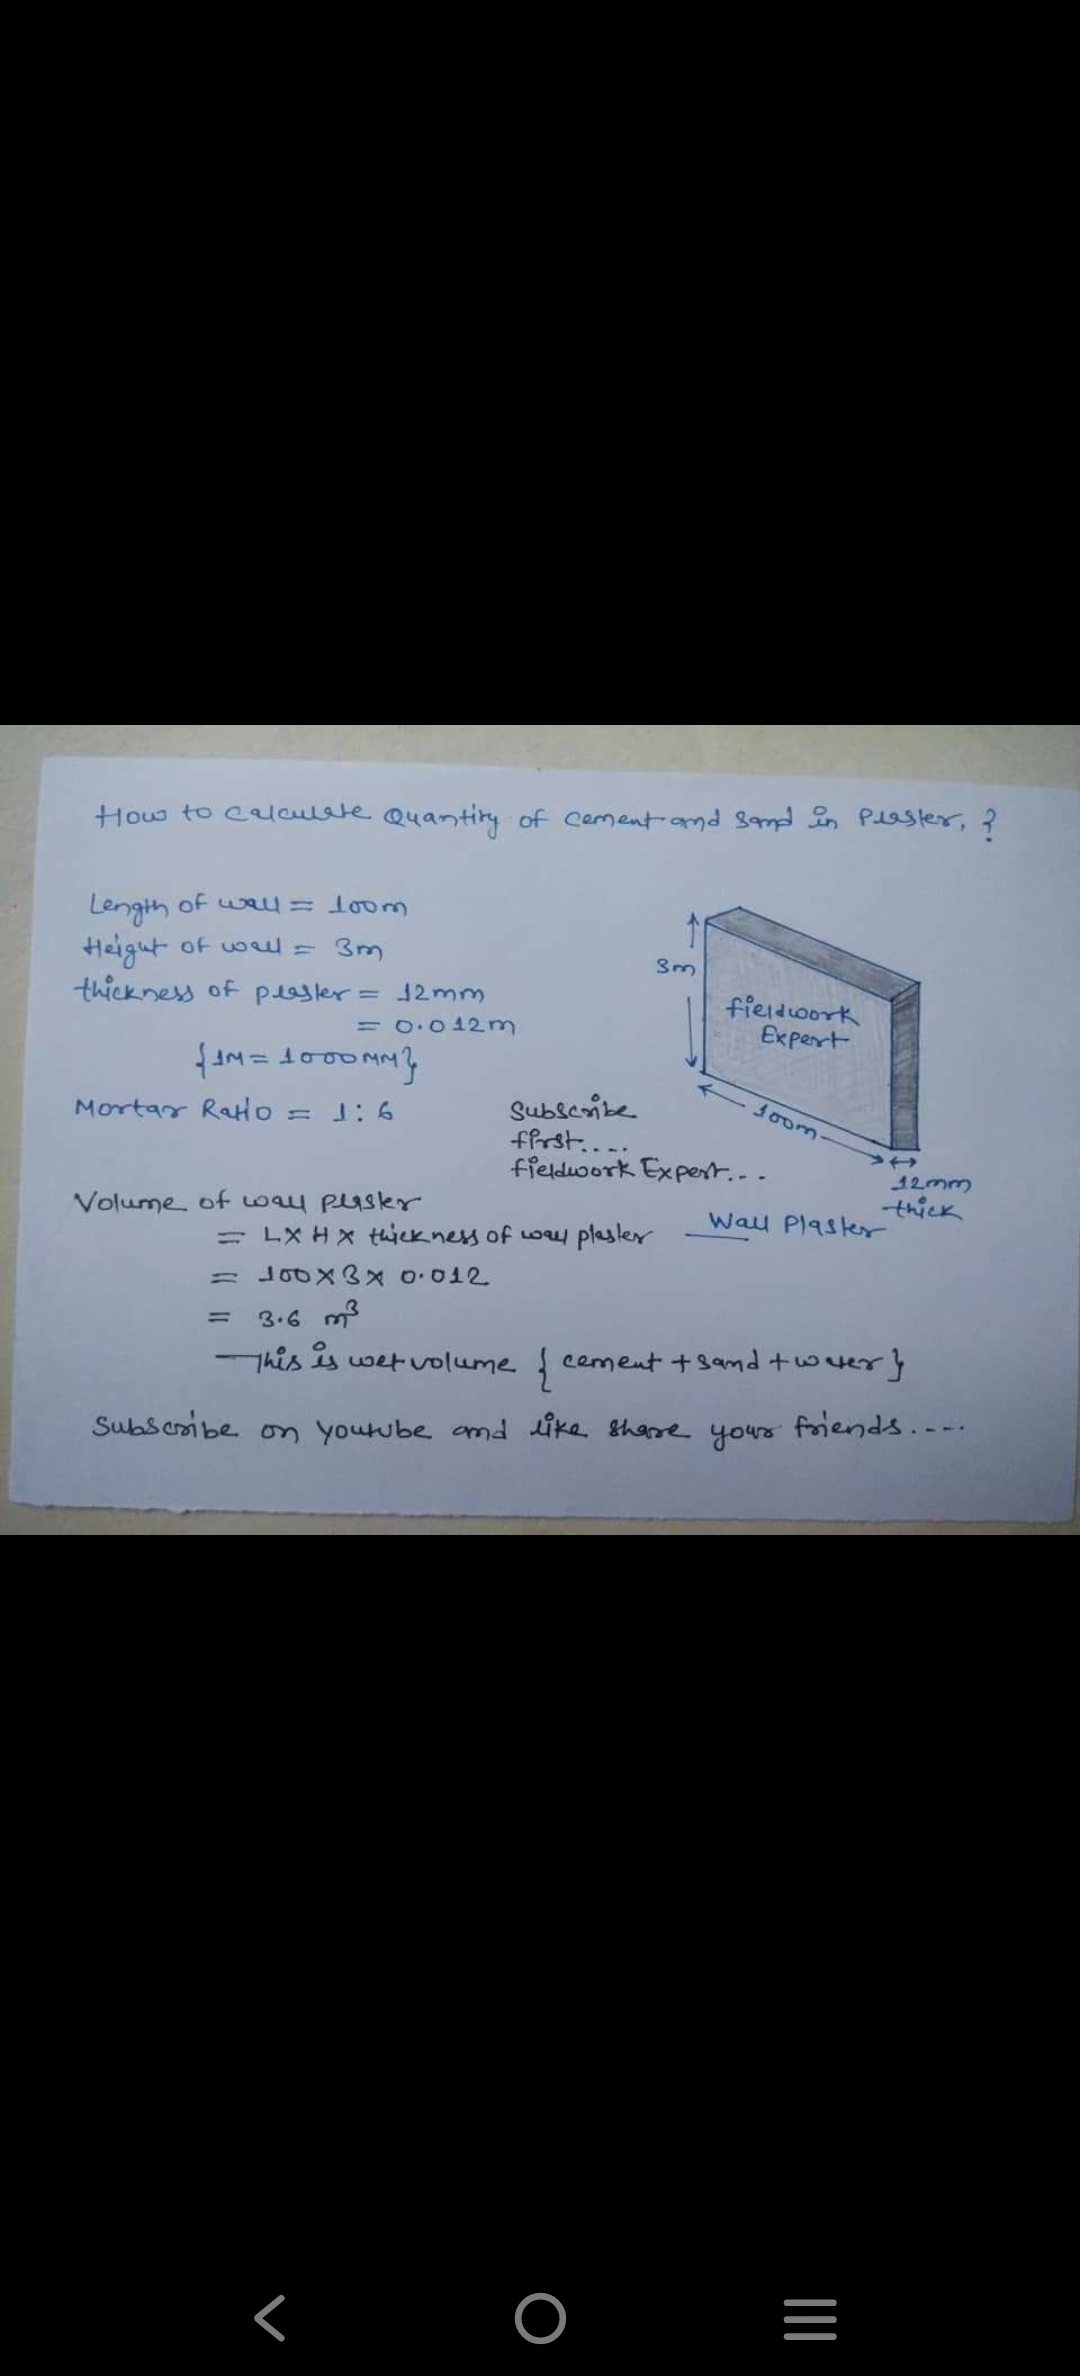 How to calculate Quantity of cement and sand in Plaster, ?
Length of wall = 100m
Height of wall = 3m
thickness of plaster = 12mm
= 0.012m
{1M = 1000MM}
Mortar Ratio = 1:6
3m
fieldwork
Expert
100m
12mm
thick
Subscribe
first....
fieldwork Expert...
Wall Plaster
Volume of wall plaster
= L X H X thickness of wall plaster
= 100 X 3 X 0.012
= 3.6 m³
This is wet volume { cement + sand + water }
Subscribe on youtube and like share your friends.....